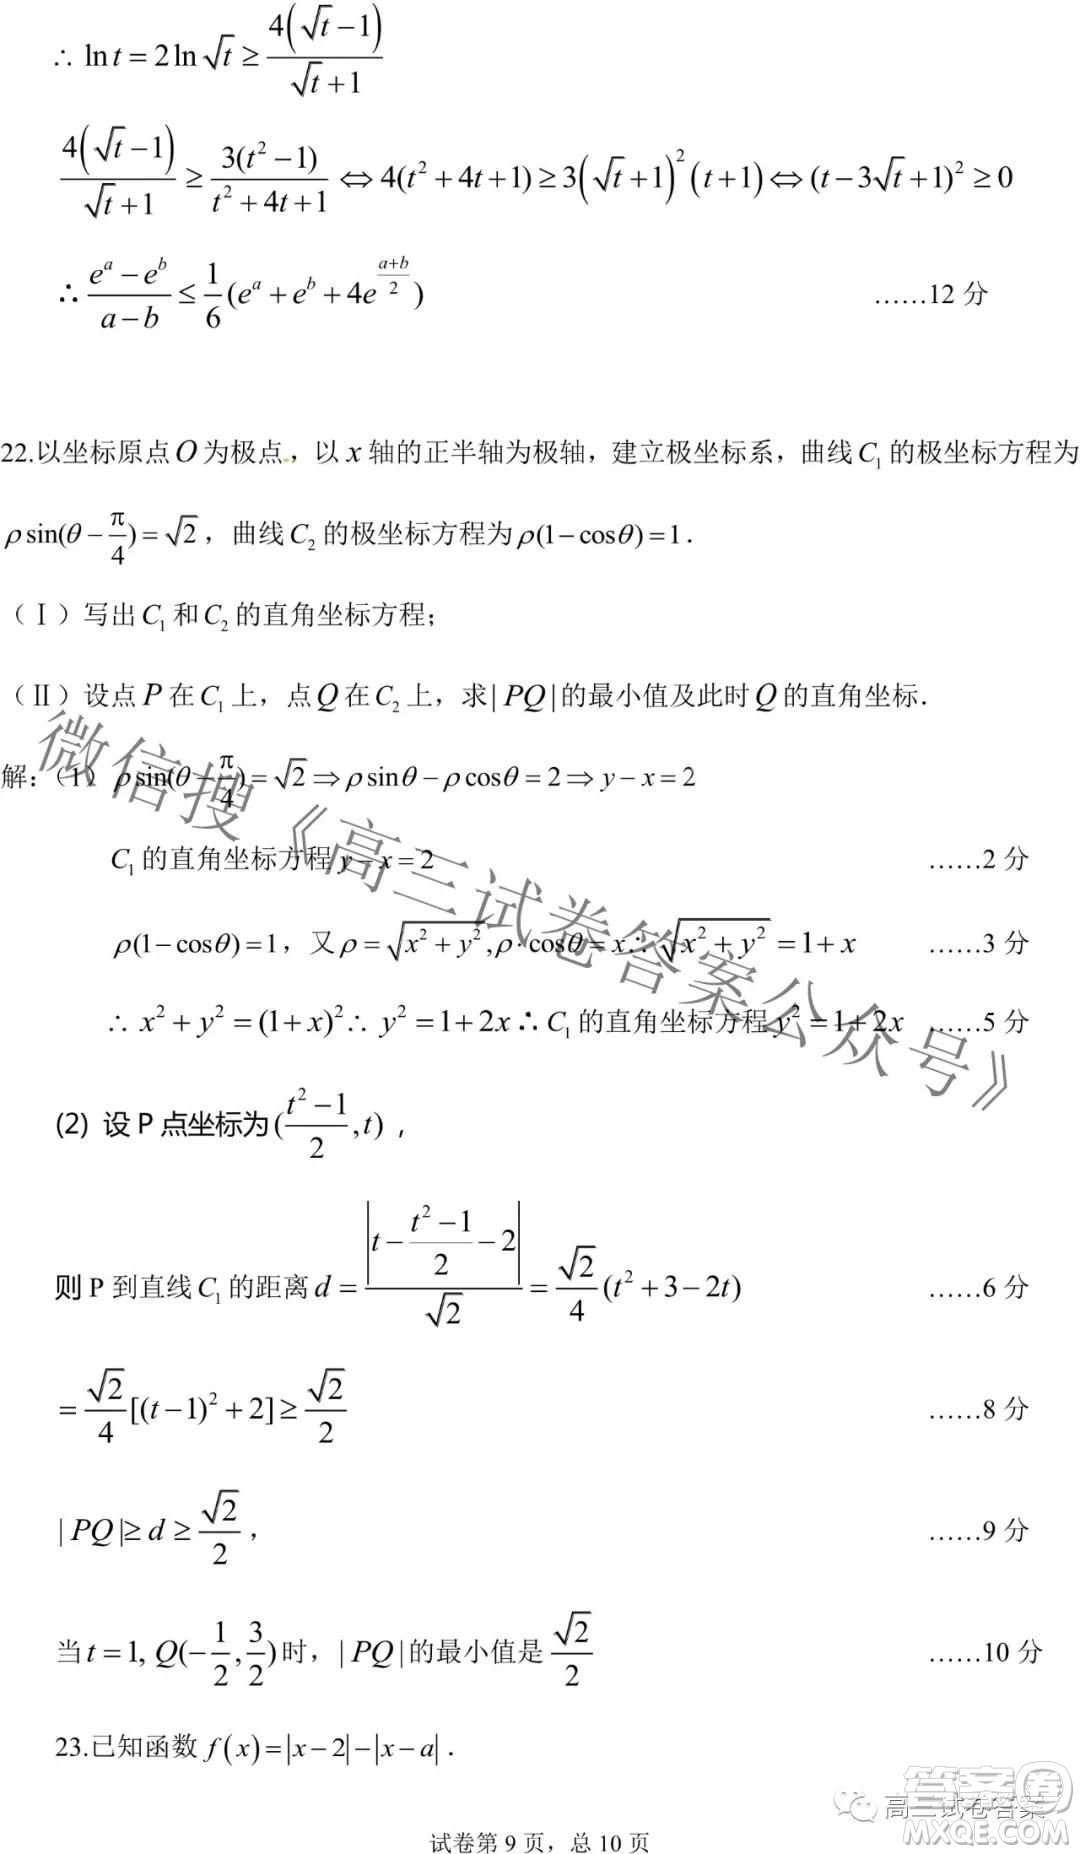 ∴ ln t = 2 ln √t ≥ 4(√t − 1)/(√t + 1)
4(√t − 1)/(√t + 1) ≥ 3(t² − 1)/(t² + 4t + 1) ⇔ 4(t² + 4t + 1) ≥ 3(√t + 1)²(t + 1) ⇔ (t − 3√t + 1)² ≥ 0
∴ (e^a − e^b)/(a − b) ≤ 1/6(e^a + e^b + 4e^((a+b)/2)) ……12 分
22.以坐标原点 O 为极点，以 x 轴的正半轴为极轴，建立极坐标系，曲线 C₁ 的极坐标方程为
ρ sin(θ − π/4) = √2，曲线 C₂ 的极坐标方程为 ρ(1 − cosθ) = 1．
（Ⅰ）写出 C₁ 和 C₂ 的直角坐标方程；
（Ⅱ）设点 P 在 C₁ 上，点 Q 在 C₂ 上，求 | PQ | 的最小值及此时 Q 的直角坐标．
解：（1） ρ sin(θ − π/4) = √2 ⇒ ρ sinθ − ρ cosθ = 2 ⇒ y − x = 2
C₁ 的直角坐标方程 y − x = 2 ……2 分
ρ(1 − cosθ) = 1，又 ρ = √(x² + y²), ρ · cosθ = x ∴ √(x² + y²) = 1 + x ……3 分
∴ x² + y² = (1 + x)² ∴ y² = 1 + 2x ∴ C₁ 的直角坐标方程 y² = 1 + 2x ……5 分
(2) 设 P 点坐标为 ((t² − 1)/2, t)，
则 P 到直线 C₁ 的距离 d = |t − (t² − 1)/2 − 2|/√2 = √2/4 (t² + 3 − 2t) ……6 分
= √2/4 [(t − 1)² + 2] ≥ √2/2 ……8 分
| PQ | ≥ d ≥ √2/2， ……9 分
当 t = 1, Q(−1/2, 3/2) 时，| PQ | 的最小值是 √2/2 ……10 分
23.已知函数 f(x) = |x − 2| − |x − a|．
试卷第 9 页，总 10 页
微信搜《高三试卷答案公众号》
高三试卷答案
答案圈
MXQE.COM